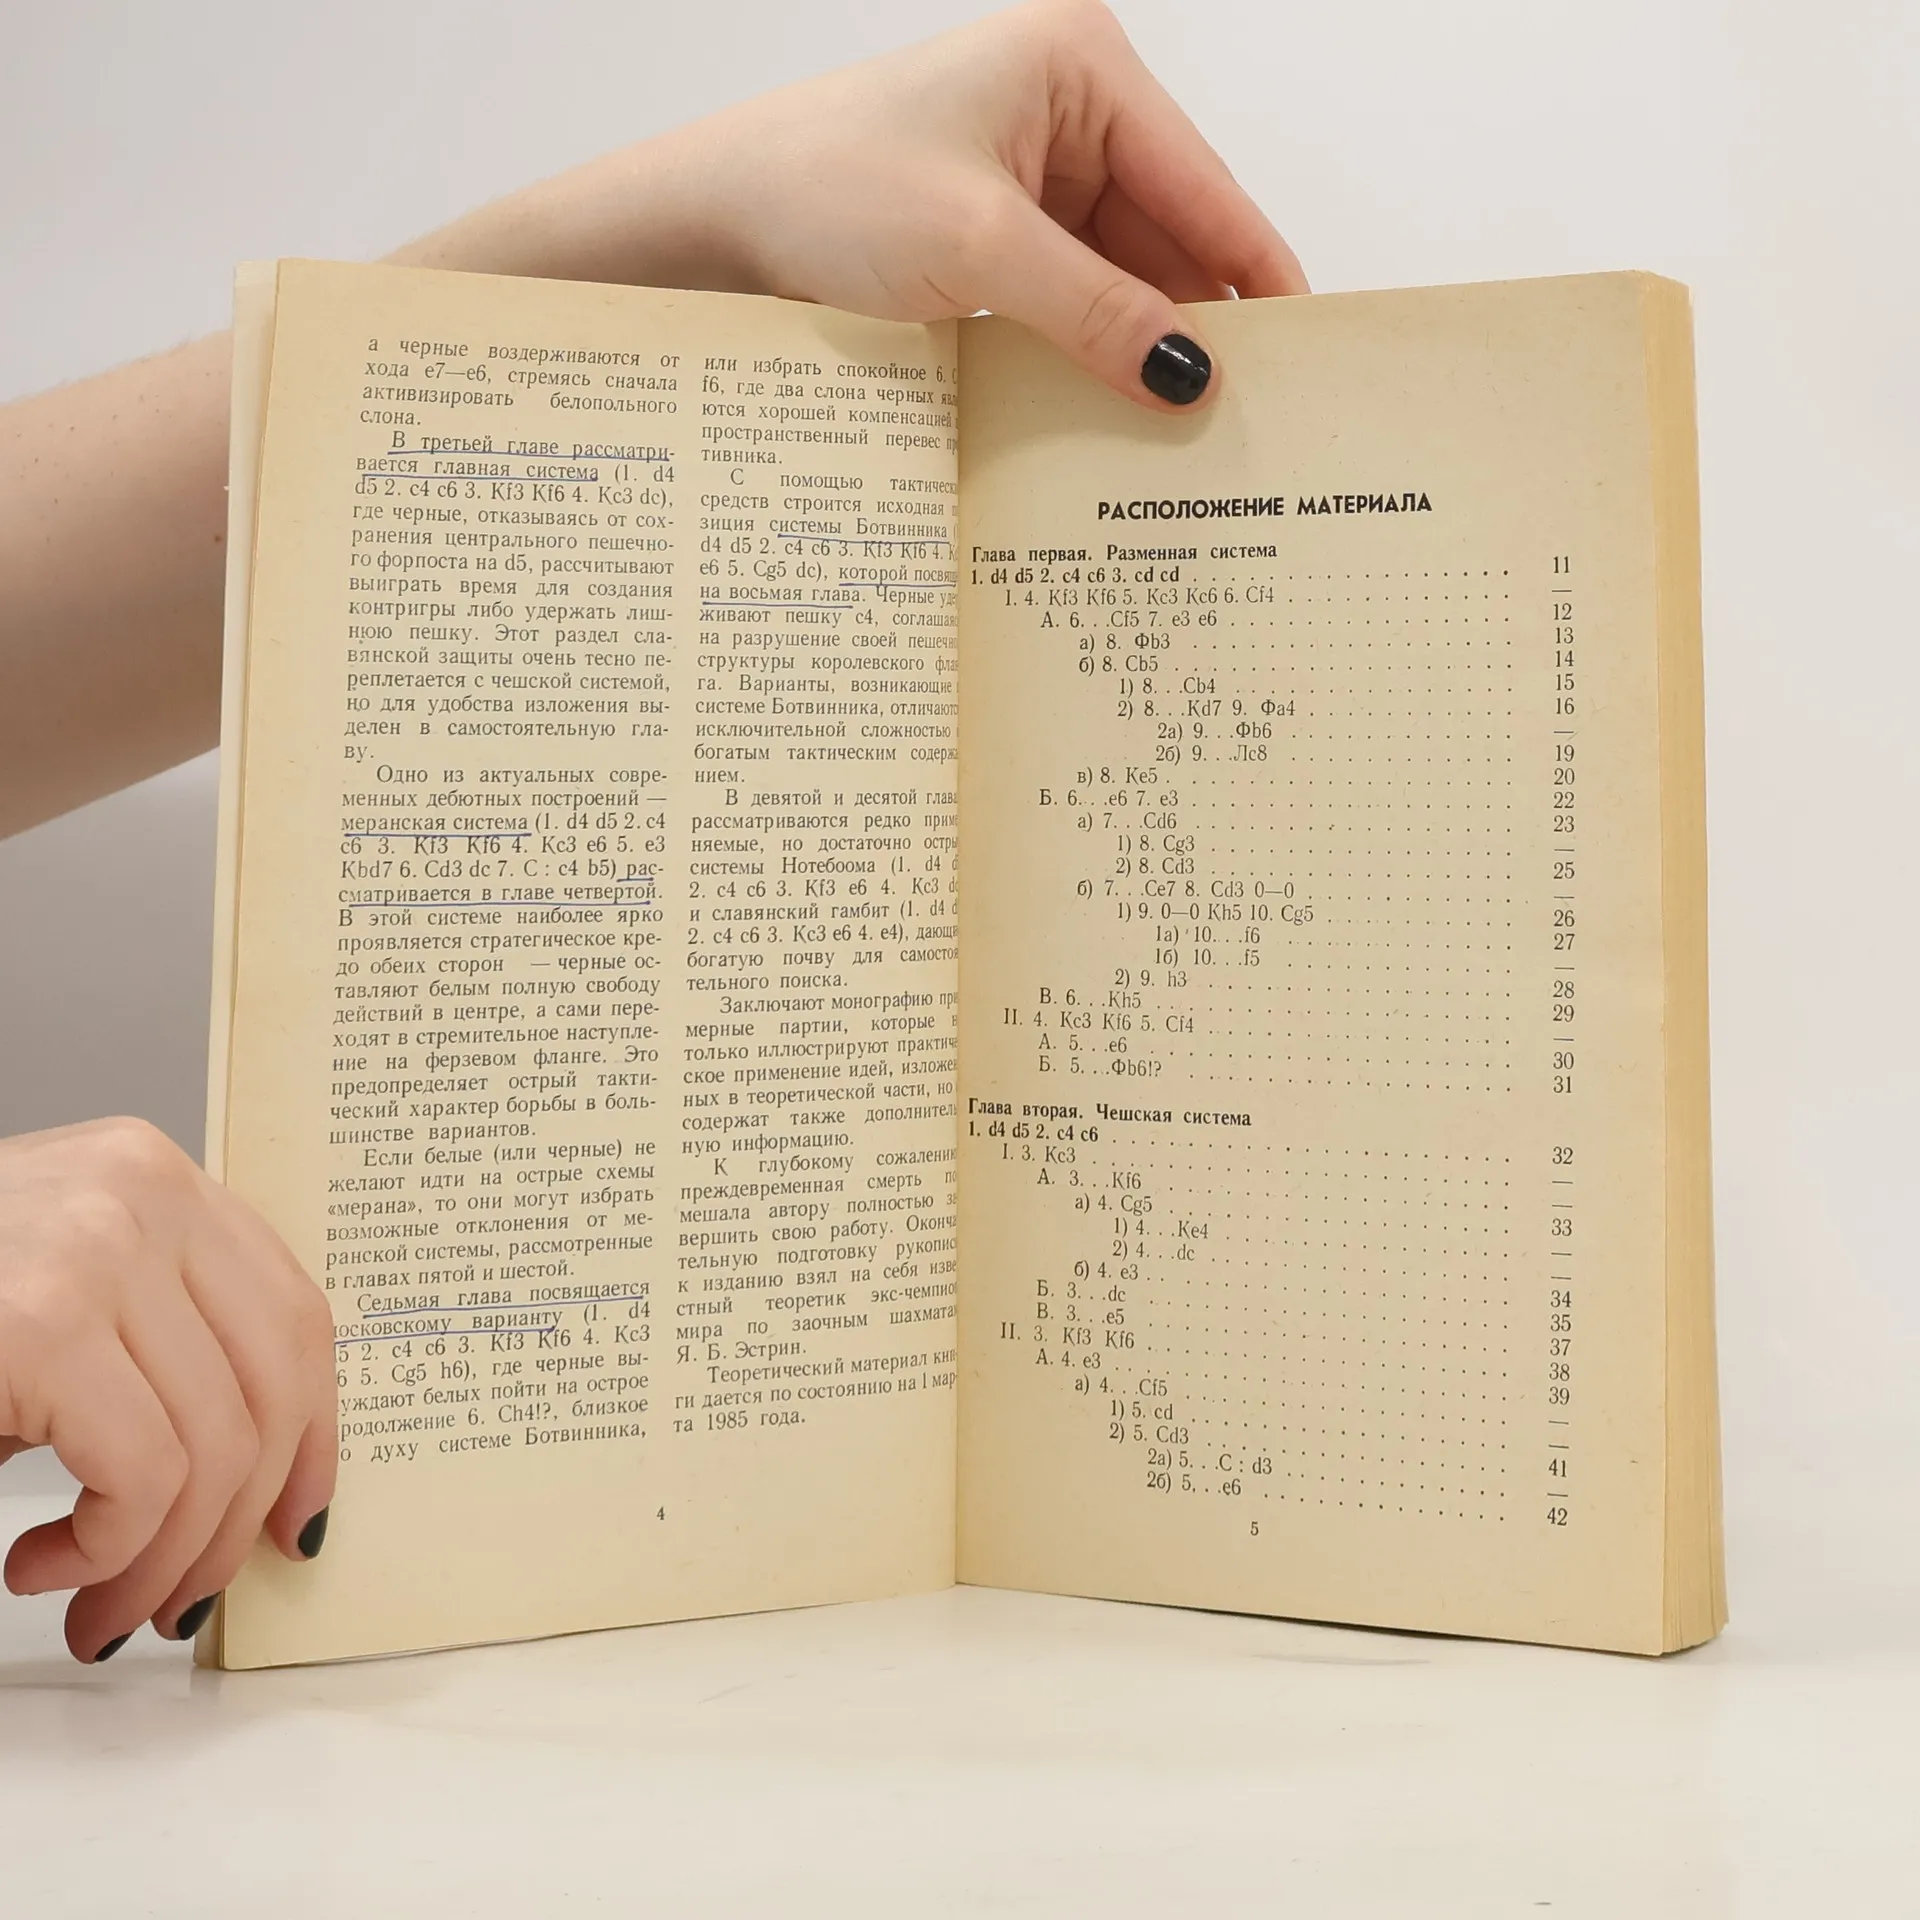 а черные воздерживаются от
хода e7—e6, стремясь сначала
активизировать белопольного
слона.
В третьей главе рассматри-
вается главная система (1. d4
d5 2. c4 c6 3. Kf3 Kf6 4. Kc3 dc),
где черные, отказываясь от сох-
ранения центрального пешечно-
го форпоста на d5, рассчитывают
выиграть время для создания
контригры либо удержать лиш-
нюю пешку. Этот раздел сла-
вянской защиты очень тесно пе-
реплетается с чешской системой,
но для удобства изложения вы-
делен в самостоятельную гла-
ву.
Одно из актуальных совре-
менных дебютных построений —
меранская система (1. d4 d5 2. c4
c6 3. Kf3 Kf6 4. Kc3 e6 5. e3
Kbd7 6. Cd3 dc 7. C : c4 b5) рас-
сматривается в главе четвертой.
В этой системе наиболее ярко
проявляется стратегическое кре-
до обеих сторон — черные ос-
тавляют белым полную свободу
действий в центре, а сами пере-
ходят в стремительное наступле-
ние на ферзевом фланге. Это
предопределяет острый такти-
ческий характер борьбы в боль-
шинстве вариантов.
Если белые (или черные) не
желают идти на острые схемы
«мерана», то они могут избрать
возможные отклонения от ме-
ранской системы, рассмотренные
в главах пятой и шестой.
Седьмая глава посвящается
осковскому варианту (1. d4
5 2. c4 c6 3. Kf3 Kf6 4. Kc3
6 5. Cg5 h6), где черные вы-
уждают белых пойти на острое
родолжение 6. Ch4!?, близкое
о духу системе Ботвинника,
4
или избрать спокойное 6.
f6, где два слона черных явл
ются хорошей компенсацией
пространственный перевес пр
тивника.
С помощью тактическ
средств строится исходная
зиция системы Ботвинника (
d4 d5 2. c4 c6 3. Kf3 Kf6 4.
e6 5. Cg5 dc), которой посвящ
на восьмая глава. Черные уде
живают пешку c4, соглашаяс
на разрушение своей пешечн
структуры королевского флан
га. Варианты, возникающие
системе Ботвинника, отличаютс
исключительной сложностью
богатым тактическим содерж
нием.
В девятой и десятой глава
рассматриваются редко приме
няемые, но достаточно остры
системы Нотебоома (1. d4 d
2. c4 c6 3. Kf3 e6 4. Kc3 dc
и славянский гамбит (1. d4 d
2. c4 c6 3. Kc3 e6 4. e4), дающи
богатую почву для самостоя
тельного поиска.
Заключают монографию при
мерные партии, которые
только иллюстрируют практиче
ское применение идей, изложен
ных в теоретической части, но
содержат также дополнитель
ную информацию.
К глубокому сожалению
преждевременная смерть по
мешала автору полностью за
вершить свою работу. Оконча
тельную подготовку рукопис
к изданию взял на себя изве
стный теоретик экс-чемпион
мира по заочным шахматам
Я. Б. Эстрин.
Теоретический материал кни-
ги дается по состоянию на 1 мар-
та 1985 года.
РАСПОЛОЖЕНИЕ МАТЕРИАЛА
Глава первая. Разменная система
1. d4 d5 2. c4 c6 3. cd cd . . . . . 11
I. 4. Kf3 Kf6 5. Kc3 Kc6 6. Cf4 . . . . . —
А. 6. . .Cf5 7. e3 e6 . . . . . 12
а) 8. Фb3 . . . . . 13
б) 8. Cb5 . . . . . 14
1) 8. . .Cb4 . . . . . 15
2) 8. . .Kd7 9. Фa4 . . . . . 16
2а) 9. . .Фb6 . . . . . —
2б) 9. . .Лc8 . . . . . 19
в) 8. Ke5 . . . . . 20
Б. 6. . .e6 7. e3 . . . . . 22
а) 7. . .Cd6 . . . . . 23
1) 8. Cg3 . . . . . —
2) 8. Cd3 . . . . . 25
б) 7. . .Ce7 8. Cd3 0—0 . . . . . —
1) 9. 0—0 Kh5 10. Cg5 . . . . . 26
1а) 10. . .f6 . . . . . 27
1б) 10. . .f5 . . . . . —
2) 9. h3 . . . . . 28
В. 6. . .Kh5 . . . . . 29
II. 4. Kc3 Kf6 5. Cf4 . . . . . —
А. 5. . .e6 . . . . . 30
Б. 5. . .Фb6!? . . . . . 31
Глава вторая. Чешская система
1. d4 d5 2. c4 c6 . . . . . 32
I. 3. Kc3 . . . . . —
А. 3. . .Kf6 . . . . . —
а) 4. Cg5 . . . . . 33
1) 4. . .Ke4 . . . . . —
2) 4. . .dc . . . . . —
б) 4. e3 . . . . . 34
Б. 3. . .dc . . . . . 35
В. 3. . .e5 . . . . . 37
II. 3. Kf3 Kf6 . . . . . 38
А. 4. e3 . . . . . 39
а) 4. . .Cf5 . . . . . —
1) 5. cd . . . . . —
2) 5. Cd3 . . . . . 41
2а) 5. . .C : d3 . . . . . —
2б) 5. . .e6 . . . . . 42
5